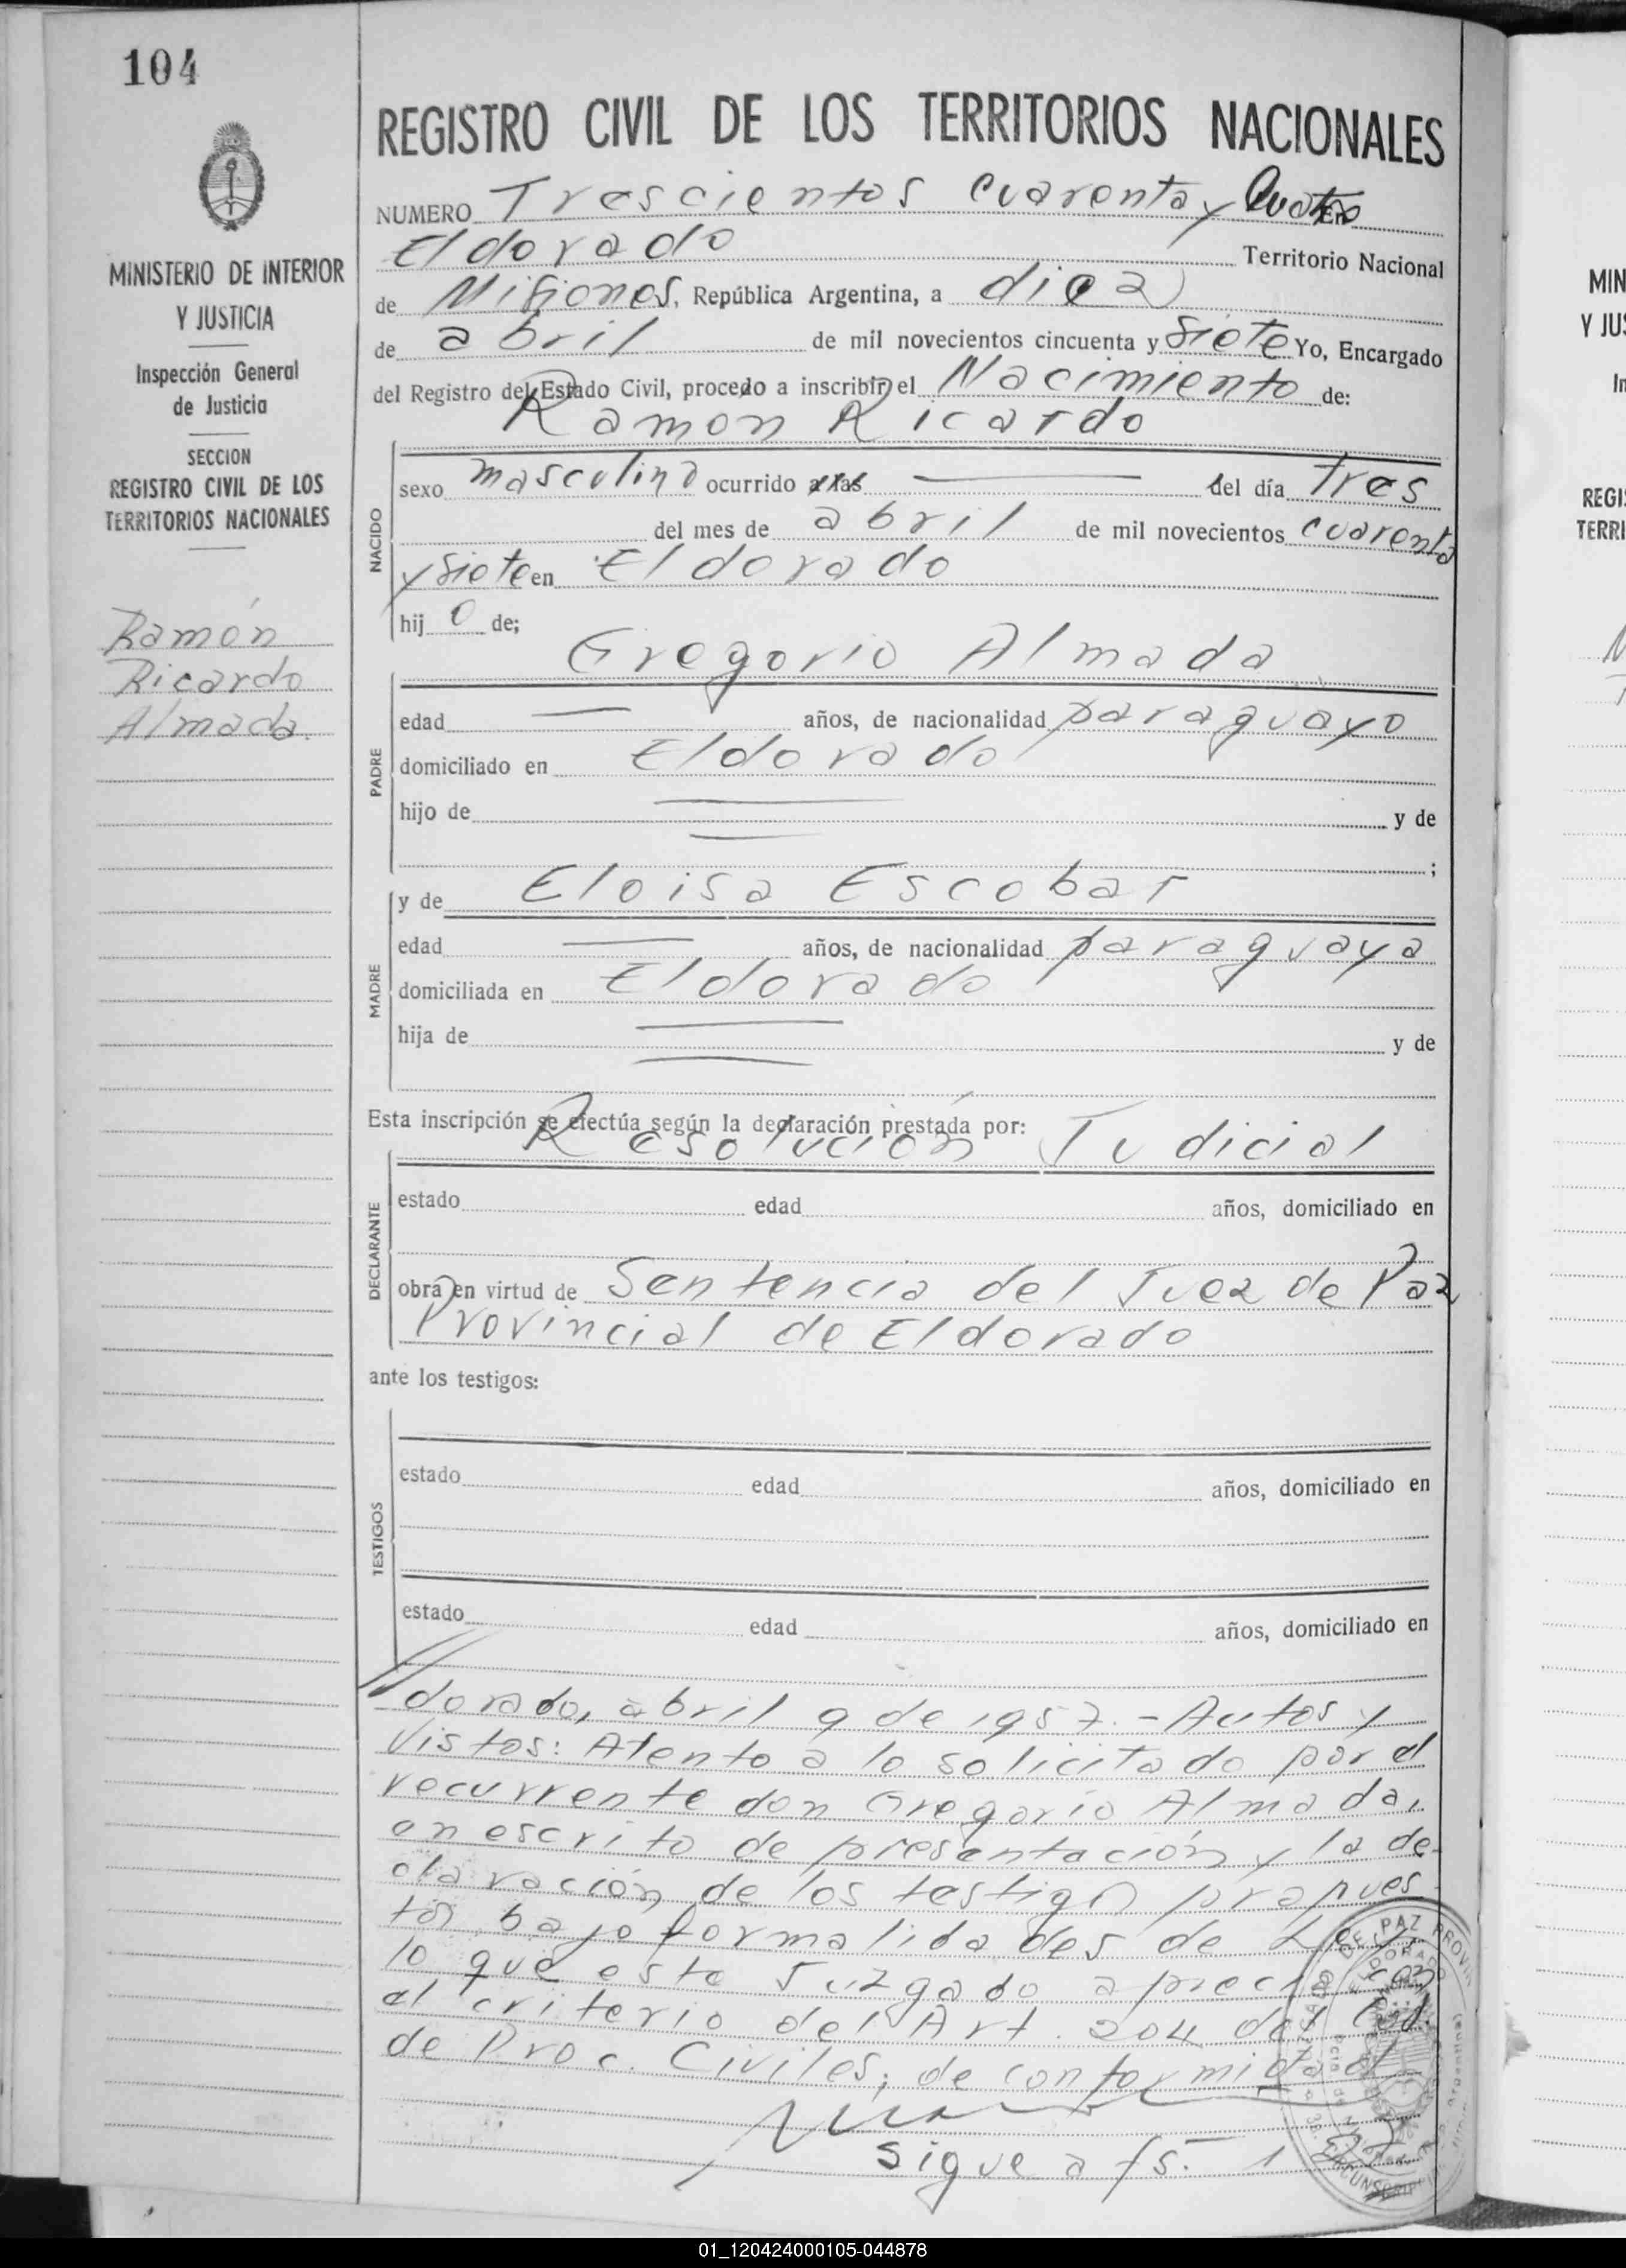 104
MINISTERIO DE INTERIOR
Y JUSTICIA
Inspección General
de Justicia
SECCION
REGISTRO CIVIL DE LOS
TERRITORIOS NACIONALES
Ramón
Ricardo
Almada.
REGISTRO CIVIL DE LOS TERRITORIOS NACIONALES
NUMERO Trescientos cuarenta y Cuatro En
Eldorado Territorio Nacional
de Misiones, República Argentina, a diez
de abril de mil novecientos cincuenta y siete Yo, Encargado
del Registro del Estado Civil, procedo a inscribir el Nacimiento de:
Ramon Ricardo
NACIDO
sexo masculino ocurrido a las del día tres
del mes de abril de mil novecientos cuarenta
y siete en Eldorado
hij o de;
Gregorio Almada
PADRE
edad años, de nacionalidad paraguayo
domiciliado en Eldorado
hijo de y de
;
y de Eloisa Escobar
MADRE
edad años, de nacionalidad paraguaya
domiciliada en Eldorado
hija de y de
Esta inscripción se efectúa según la declaración prestada por:
Resolución Judicial
DECLARANTE
estado edad años, domiciliado en
obra en virtud de Sentencia del Juez de Paz
Provincial de Eldorado
ante los testigos:
TESTIGOS
estado edad años, domiciliado en
estado edad años, domiciliado en
dorado, abril 9 de 1957. - Autos y
Vistos: Atento a lo solicitado por el
recurrente don Gregorio Almada,
en escrito de presentación y la de-
claración de los testigo propues-
tos bajo formalidades de Ley,
lo que este Juzgado aprecia con
el criterio del Art. 204 del Cod.
de Proc. Civiles; de conformidad
sigue a fs. 1
DE PAZ PROVIN
ELDORADO
MIN
Y JUS
In
REGI
TERRI
01_120424000105-044878